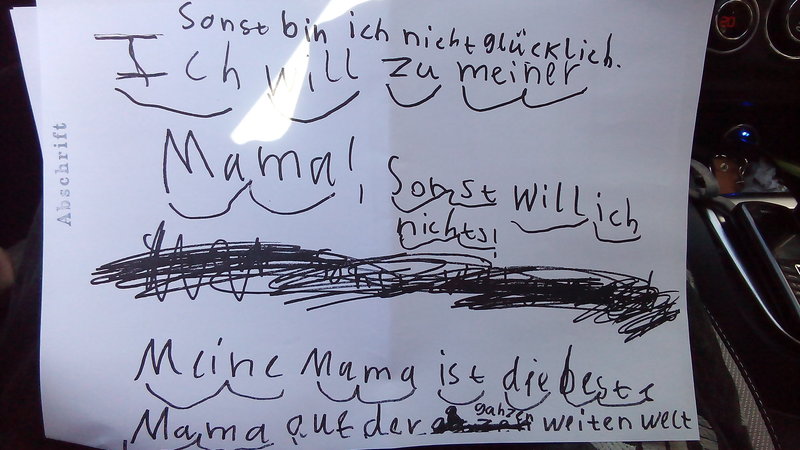 Sonst bin ich nicht glücklich.
Ich will zu meiner
Mama! Sonst will ich
nichts!
Meine Mama ist die beste
Mama auf der ganzen weiten welt
Abschrift
20